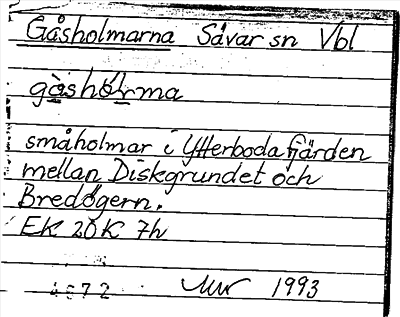 Gåsholmarna Sävar sn Vbl
gåshólma
småholmar i Ytterbodafjärden
mellan Diskgrundet och
Bredögern.
EK 20K 7h
4672 1993